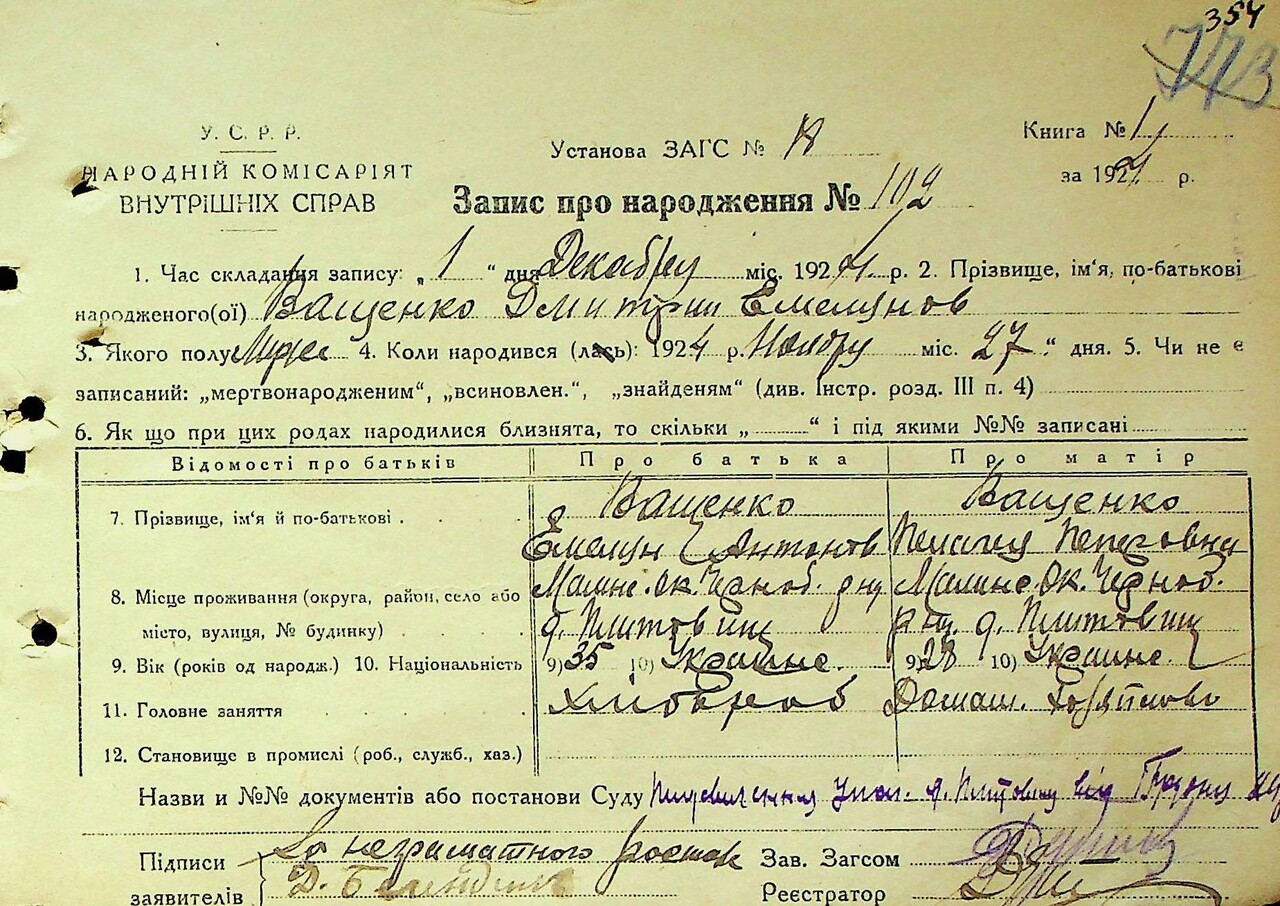 354
773
У. С. Р. Р.
НАРОДНІЙ КОМІСАРІЯТ
ВНУТРІШНІХ СПРАВ
Установа ЗАГС № 18
Книга № 1
за 1924 р.
Запис про народження № 102
1. Час складання запису: „ 1 “ дня Декабру міс. 1924 р. 2. Прізвище, ім'я, по-батькові
народженого(ої) Ващенко Дмитрии Емелунов
3. Якого полу Муже 4. Коли народився (лась): 1924 р. Ноябру міс. 27 “ дня. 5. Чи не є
записаний: „мертвонародженим“, „всиновлен.“, „знайденям“ (див. Інстр. розд. III п. 4)
6. Як що при цих родах народилися близнята, то скільки „ “ і під якими №№ записані
Відомості про батьків Про батька Про матір
7. Прізвище, ім'я й по-батькові . Ващенко Ващенко
Емелун Антонов Пелагея Петровна
8. Місце проживання (округа, район, село або Малинс. Ок. Черноб. рну Малинс. Ок. Черноб.
місто, вулиця, № будинку) д. рну. д.
9. Вік (років од народж.) 10. Національність 9) 35 10) Украине. 9) 28 10) Украине.
11. Головне заняття Хлібороб Домаш.
12. Становище в промислі (роб., служб., хаз.)
Назви и №№ документів або постанови Суду
Підписи За неграматного Зав. Загсом
заявителів Д. Реєстратор